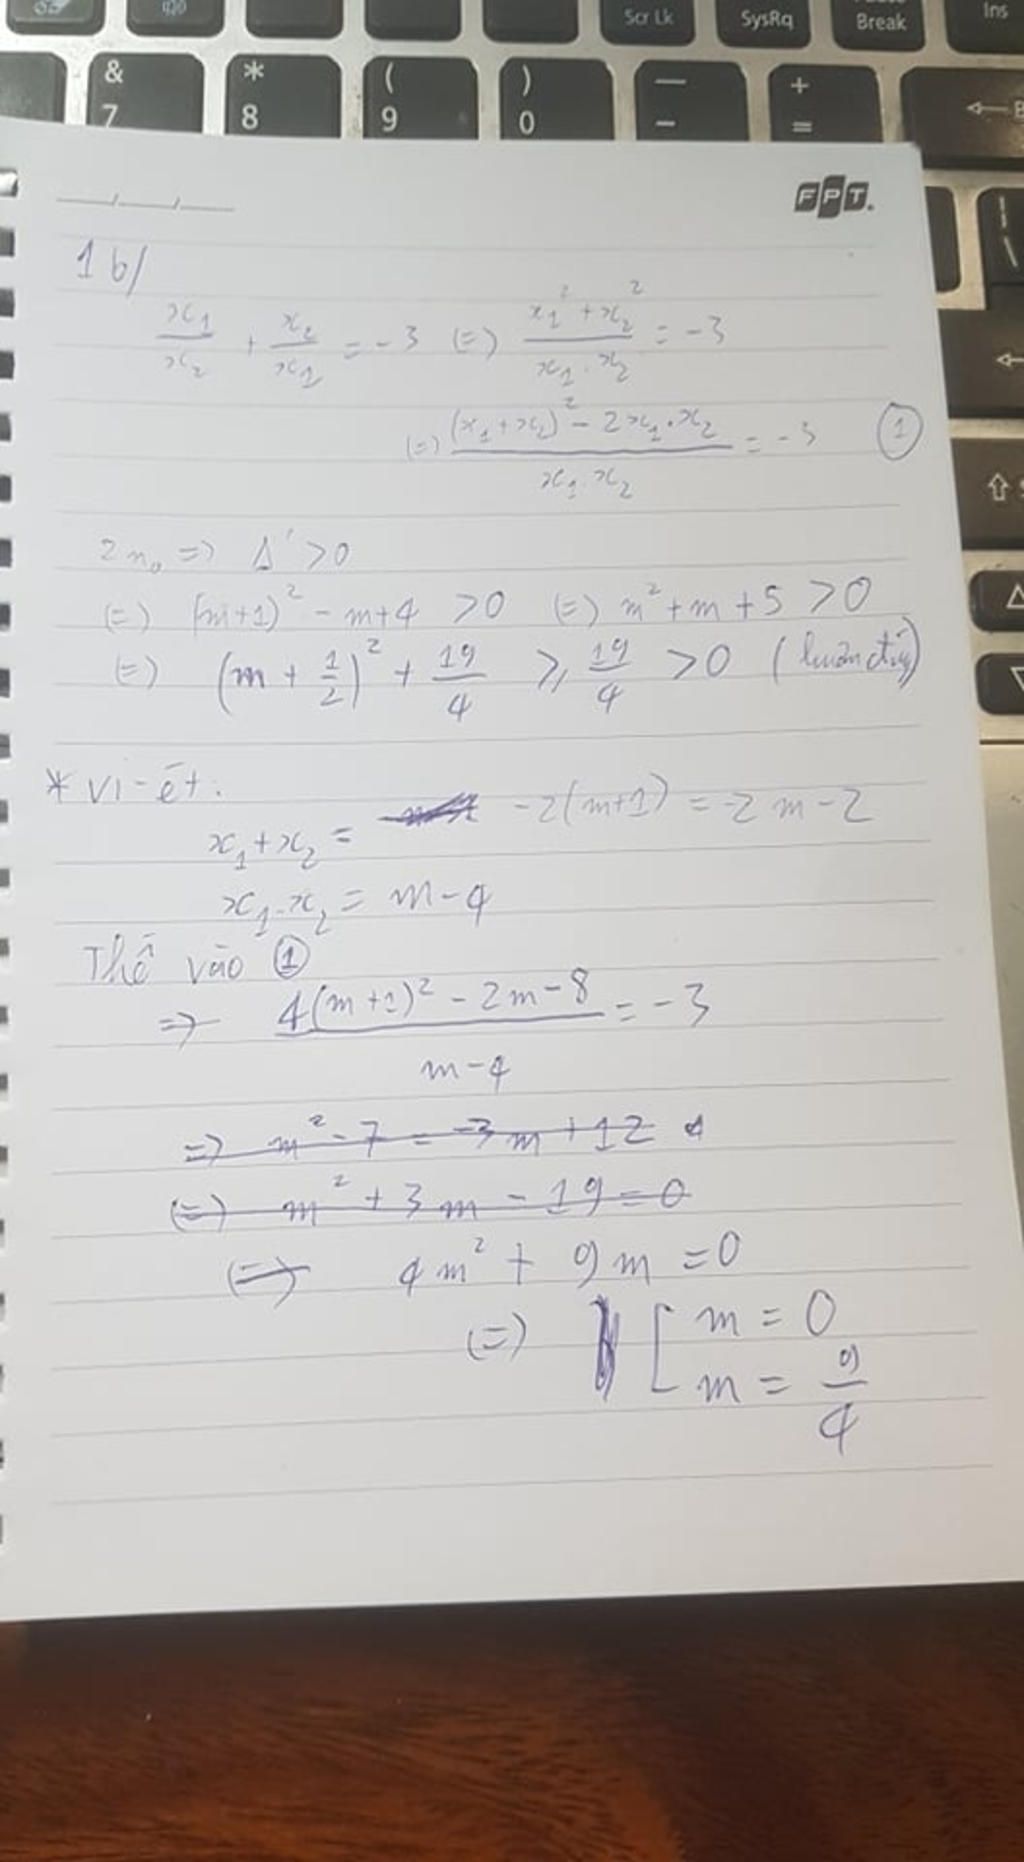 Scr Lk SysRq Break Ins
& * ( ) — +
7 8 9 0 - =
FPT.
1 b/
x₁/x₂ + x₂/x₁ = -3 (=) x₁² + x₂² / x₁ . x₂ = -3
(=) (x₁ + x₂)² - 2x₁ . x₂ / x₁ . x₂ = -3 ①
2 n₀ => Δ' > 0
(=) (m+1)² - m+4 > 0 (=) m² + m + 5 > 0
(=) (m + 1/2)² + 19/4 ⩾ 19/4 > 0 (luôn đúng)
* Vi-ét:
x₁ + x₂ = -2(m+1) = -2m-2
x₁ . x₂ = m-4
Thế vào ①
=> 4(m+1)² - 2m-8 / m-4 = -3
=> m² - 7 = -3m + 12
(=) m² + 3m - 19 = 0
(=) 4m² + 9m = 0
(=) [ m = 0
m = 9/4